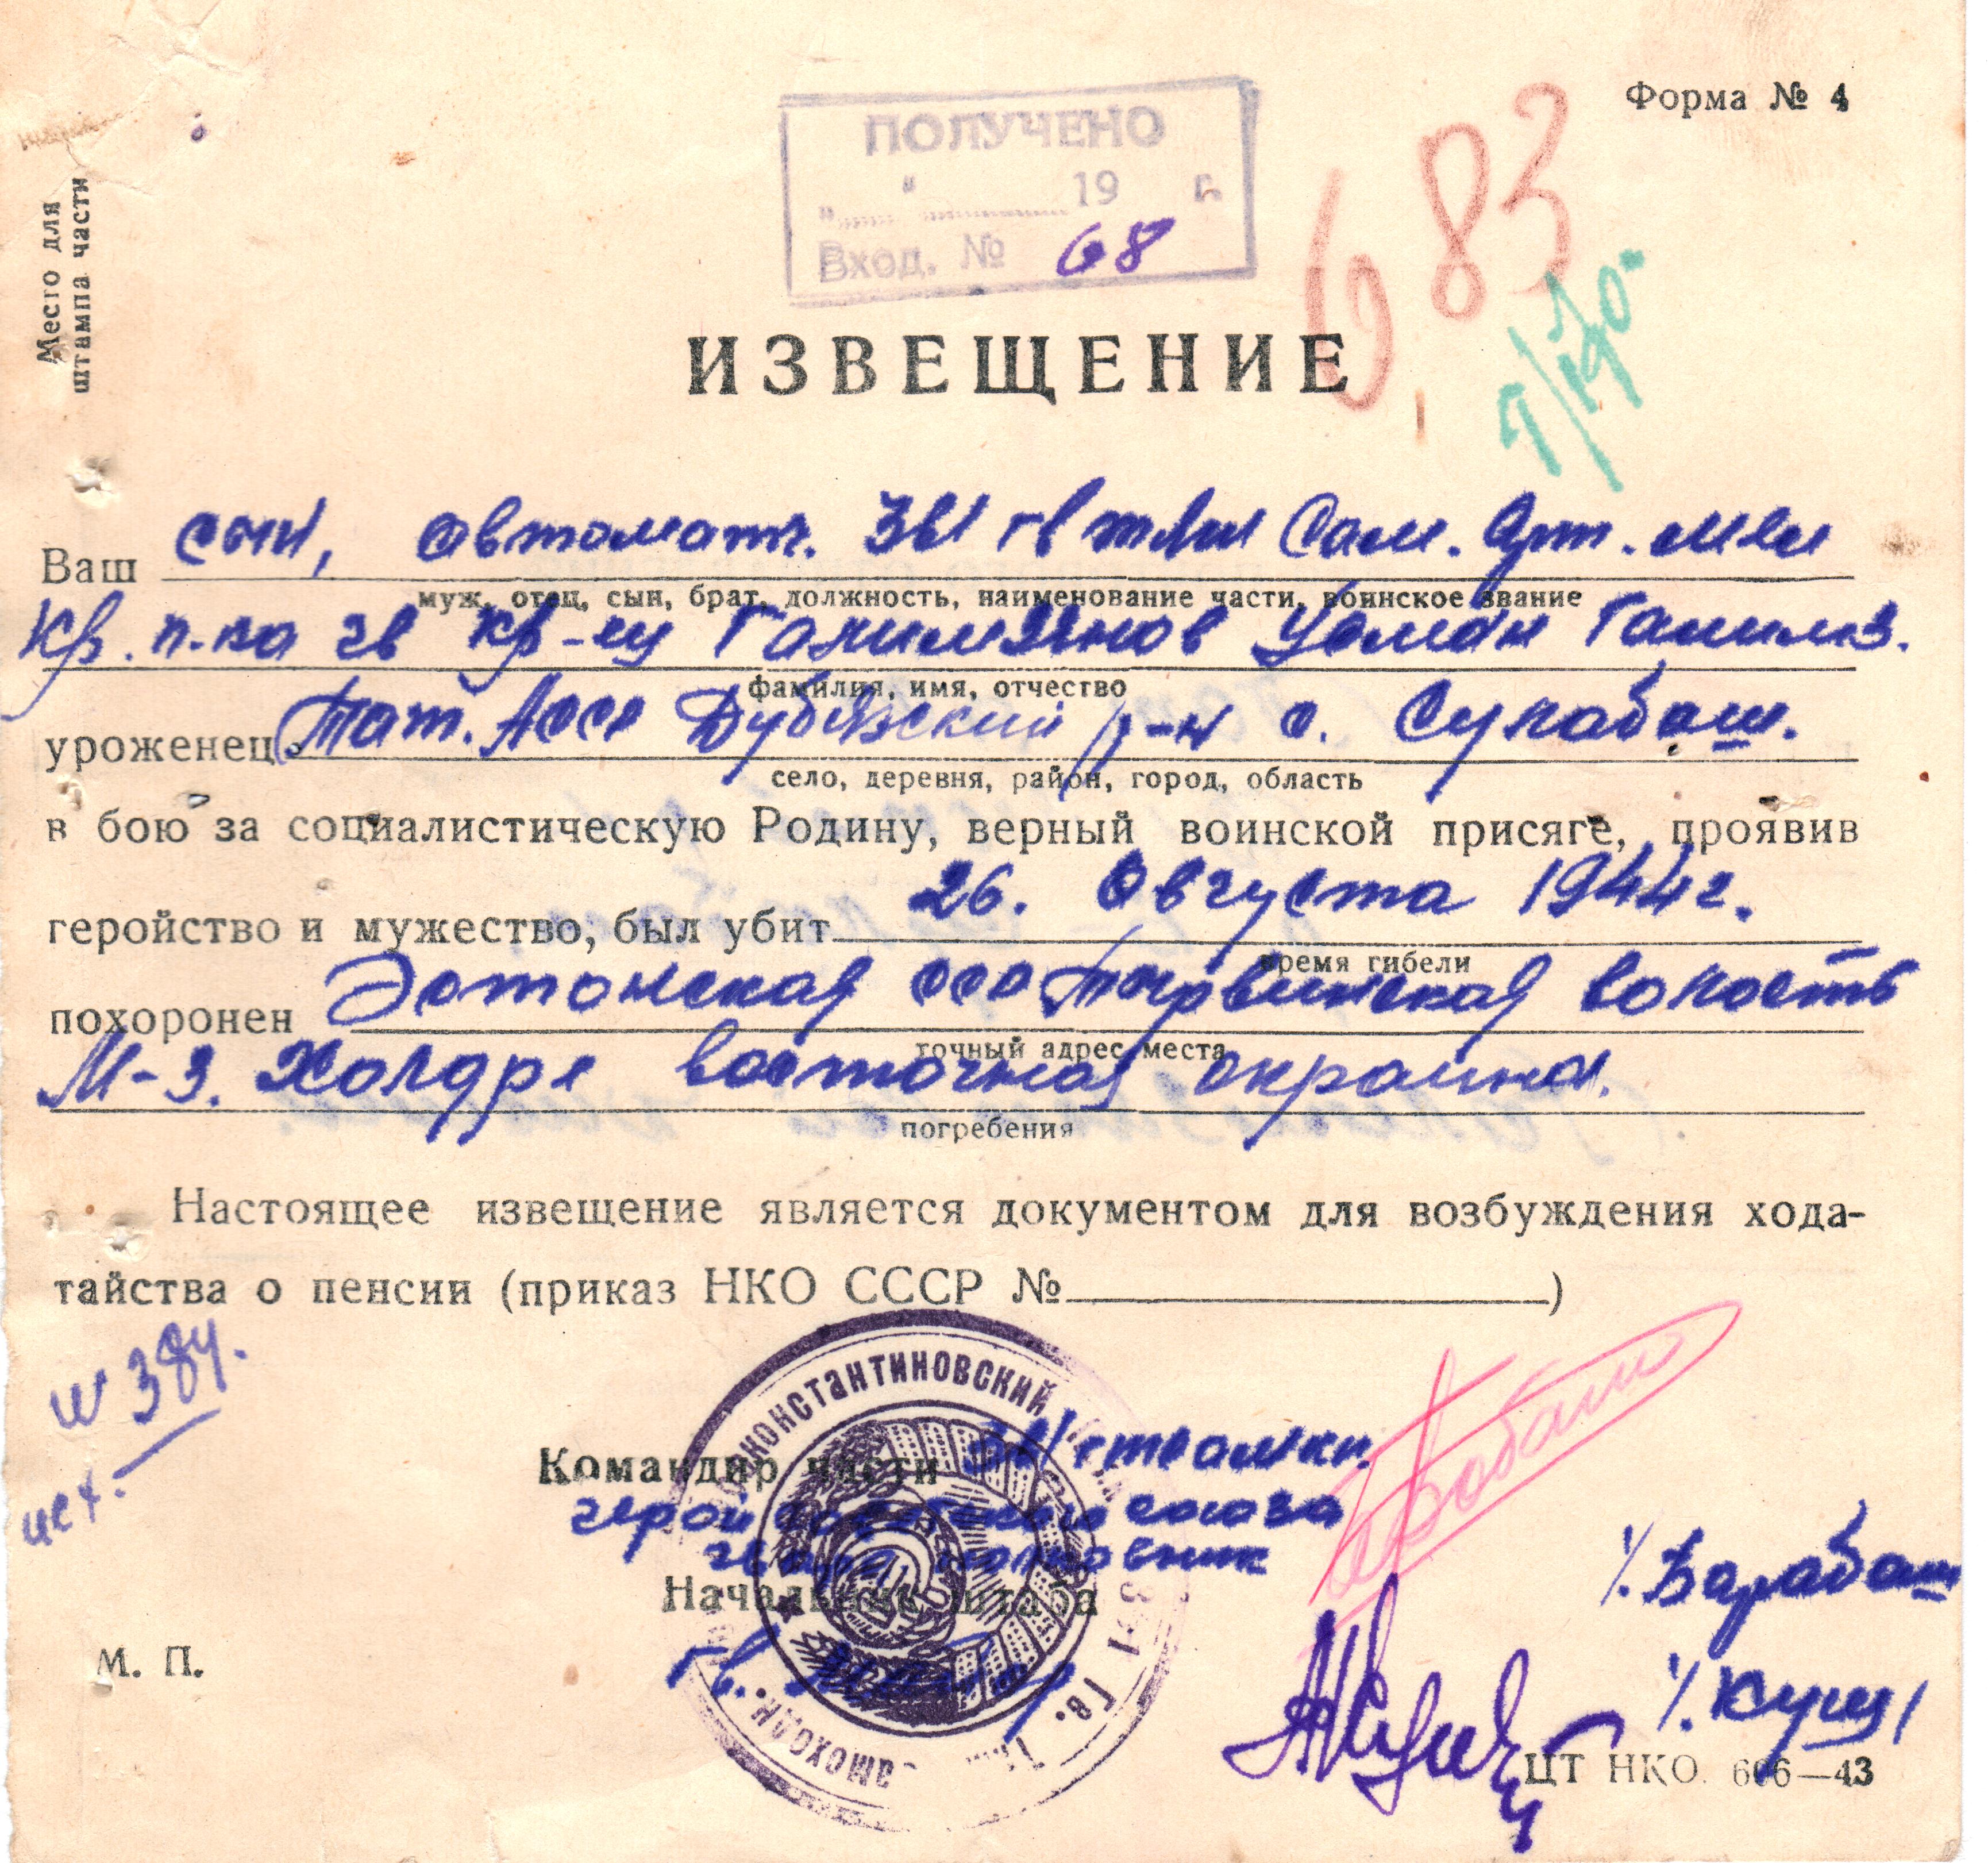 Форма № 4
Место для
штампа части
ПОЛУЧЕНО
" " 19 г.
Вход. № 68
683
ИЗВЕЩЕНИЕ
Ваш сын, автоматч. 361 гв тяж Сам. Арт. мен
муж, отец, сын, брат, должность, наименование части, воинское звание
Кр. п-ка гв кр-ец Галимзянов Усман Галимз.
фамилия, имя, отчество
уроженец Тат. Асср Дубязский р-н с. Сулабаш.
село, деревня, район, город, область
в бою за социалистическую Родину, верный воинской присяге, проявив
геройство и мужество, был убит 26. Августа 1944г.
время гибели
похоронен Эстонская сср Тырвинская волость
точный адрес места
М-з. Холдре восточная окраина.
погребения
Настоящее извещение является документом для возбуждения хода-
тайства о пенсии (приказ НКО СССР № )
№ 384.
исх.
Командир части
герой советского союза
гвард. полковник
/. Барабаш
Начальник штаба
гв. майор
/. Кущ /
М. П.
ЦТ НКО. 606—43